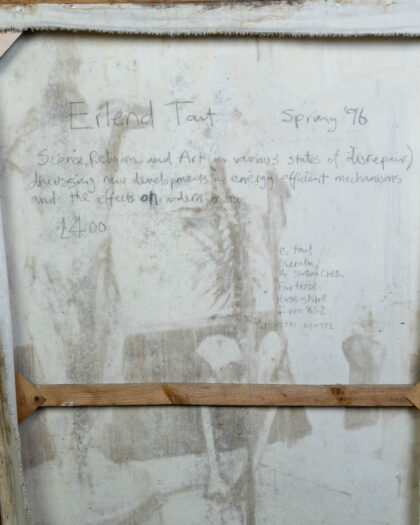 Erlend Tait Spring '96
Science, Religion and Art (in various states of disrepair)
discussing new developments in energy efficient mechanisms
and the effects on modern
£400
E. Tait
Station Cres.
Fortrose
Ross-shire